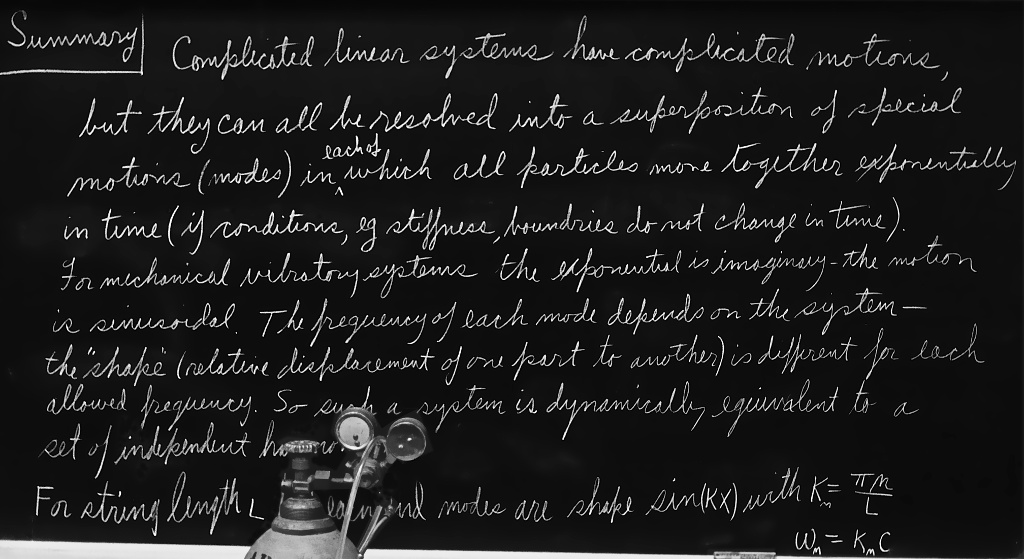 Summary Complicated linear systems have complicated motions,
but they can all be resolved into a superposition of special
motions (modes) in each of which all particles move together exponentially
in time (if conditions, eg stiffness, boundries do not change in time).
For mechanical vibratory systems the exponential is imaginary - the motion
is sinusoidal. The frequency of each mode depends on the system —
the "shape" (relative displacement of one part to another) is different for each
allowed frequency. So such a system is dynamically equivalent to a
set of independent
For string length L modes are shape sin(kx) with Kₙ = πn/L
ωₙ = KₙC